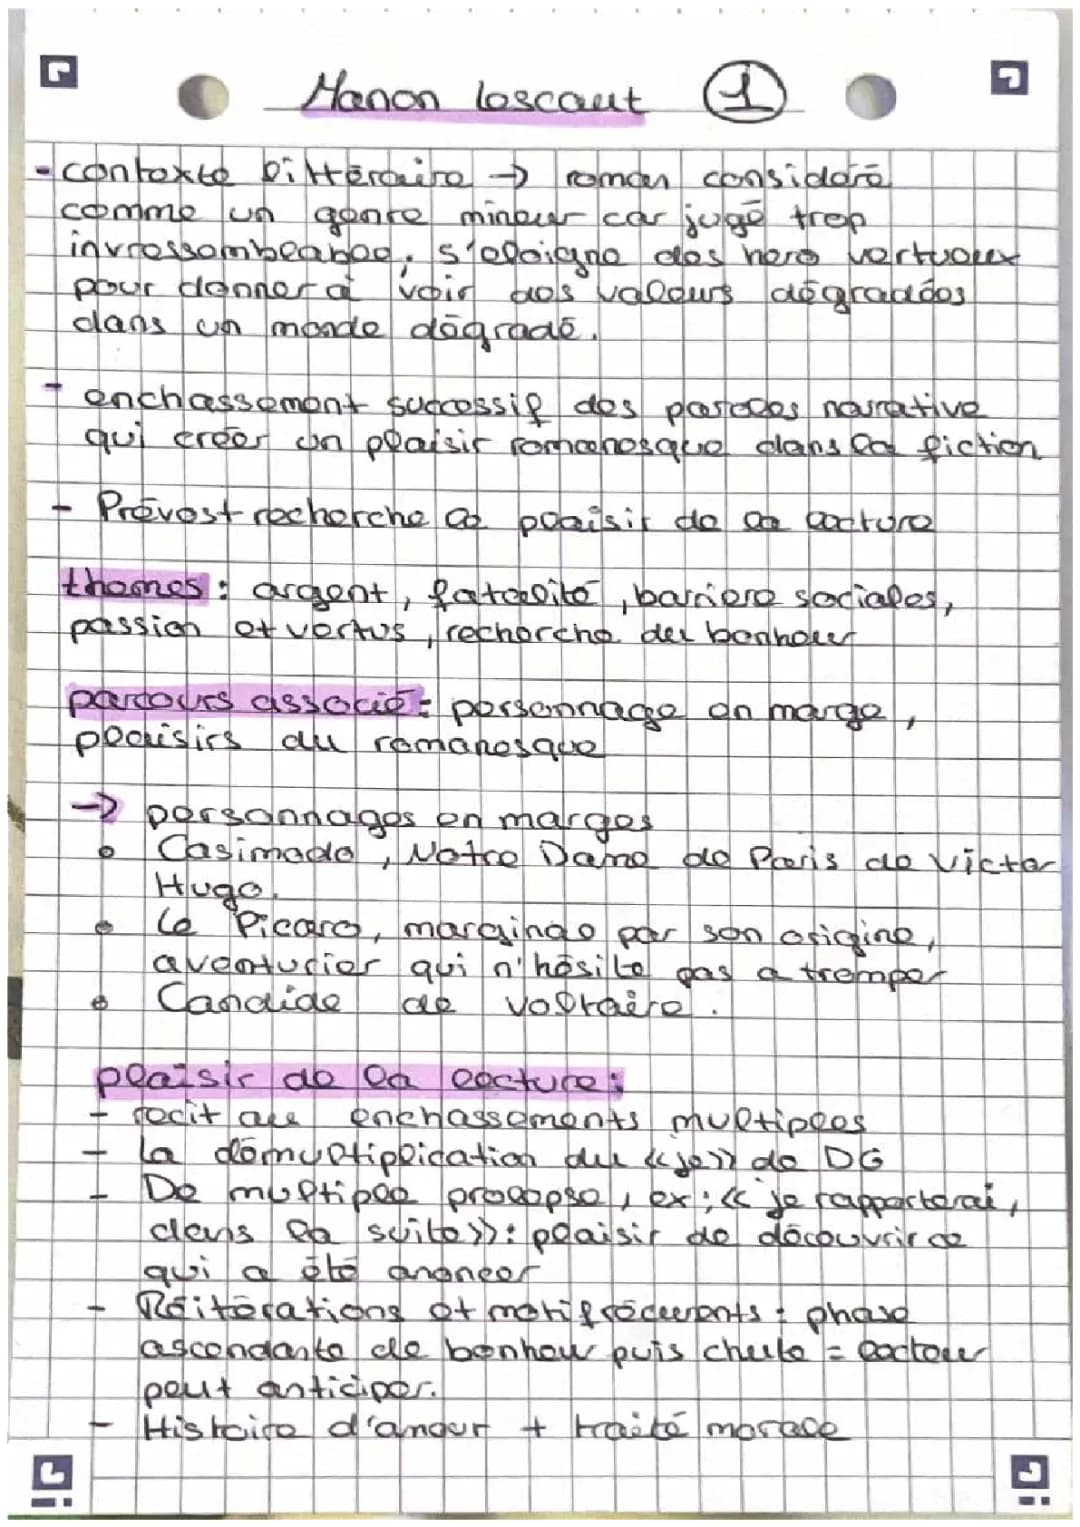 Manon lescaut 1
- contexte littéraire → roman considéré
comme un genre mineur car jugé trop
invressemblable, s'éloigne des hero vertueux
pour donner à voir des valeurs dégradées
dans un monde dégradé.
- enchassement successif des paroles narrative
qui créer un plaisir romanesque dans la fiction
- Prévost recherche le plaisir de la lecture
themes : argent, fatalité, barriere sociales,
passion et vertus, recherche du bonheur
parcours associé : personnage en marge,
plaisirs du romanesque
→ personnages en marges
• Casimodo, Notre Dame de Paris de Victor
Hugo.
• Le Picaro, marginale par son origine,
aventurier qui n'hésite pas a tromper
• Candide de Voltaire.
plaisir de la lecture :
- recit au enchassements multiples
- La démultiplication du «je» de DG
- De multiple prolepse, ex : « je rapporterai,
dans la suite» : plaisir de découvrir ce
qui a été annoncer
- Réitérations et motif récurrents : phase
ascendante de bonheur puis chute = lecteur
peut anticiper.
- Histoire d'amour + traité morale